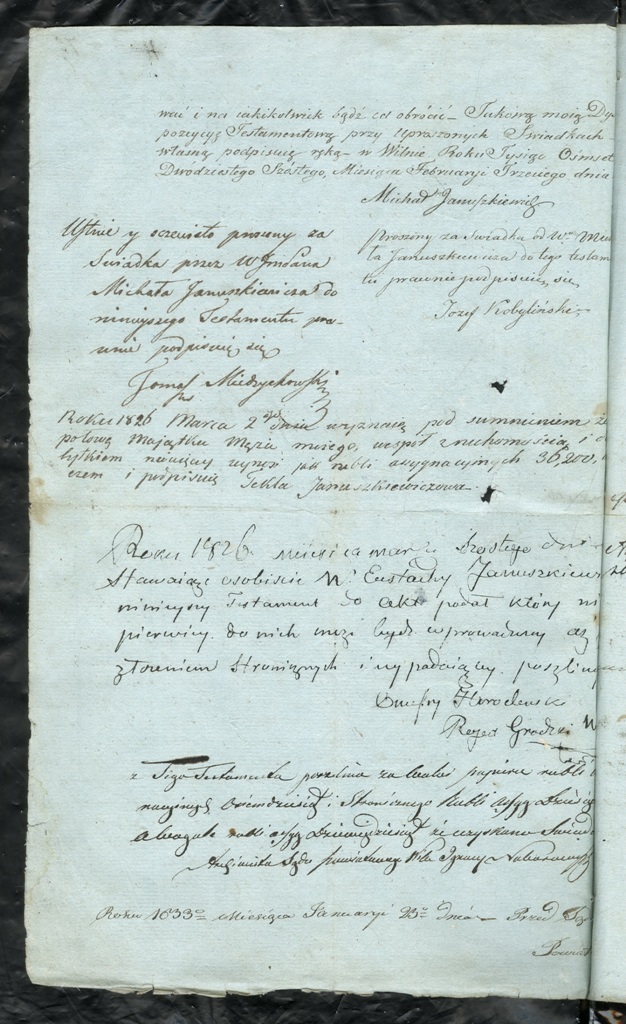 wać i na jakikolwiek bądź cel obrócić – Takową moią Dy
pozycyę Testamentową przy uproszonych Swiadkach
własną podpisuię ręką – w Wilnie Roku Tysiąc Ośmset
Dwodziestego Szóstego, Miesiąca Februaryi Trzeciego dnia
Michał Januszkiewicz
Ustnie y oczewisto proszony za
Swiadka przez W Jmć Pana
Michała Januszkiewicza do
ninieyszego Testamentu pra-
wnie podpisuię się
Tomasz Miedzychowski
Proszony za Swiadka od Wo Micha
ła Januszkiewicza do tego testam
tu prawnie podpisuię się
Jozef Kobyliński
Roku 1826 Marca 2go dnia wyznaię pod sumnieniem że
połowę Maiątku Męża moiego, wespół z ruchomością i
wynosi rubli assygnacyinych 36,200,
czem i podpisuię Tekla Januszkiewiczowa
Roku 1826 miesiąca marca szostego dnia
Stawaiąc osobiscie W. Eustachy Januszkiew
ninieyszy Testament do akt podał który ni
pierwiey do nich może bydź wprowadzony aż
złożeniem Stronicznych i wypadaiącey poszliny
Onufry Horodeński
Regent Grodzki W
z Tego Testamentu poszlina za papieru rubli
Ośmdziesiąt i Stronicznego Rubli assyg
rubli assyg Dziewiędziesiąt iż uzyskano Swiad
Sądu Powiatowego Wile Ignacy
Roku 1833o Miesiąca Januaryi 23o Dnia – Przed
Powiat